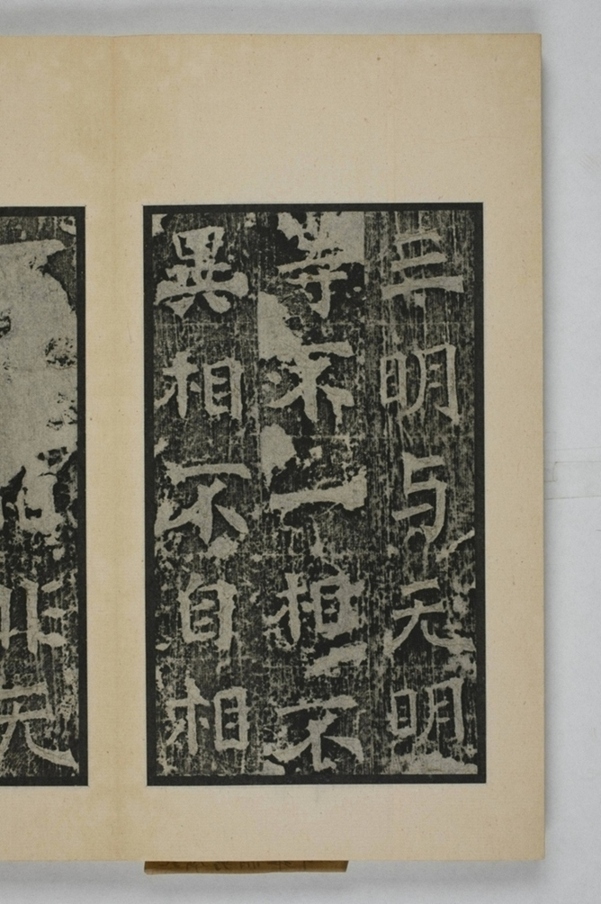 三明与无明
等不一相不
異相不自相
非无